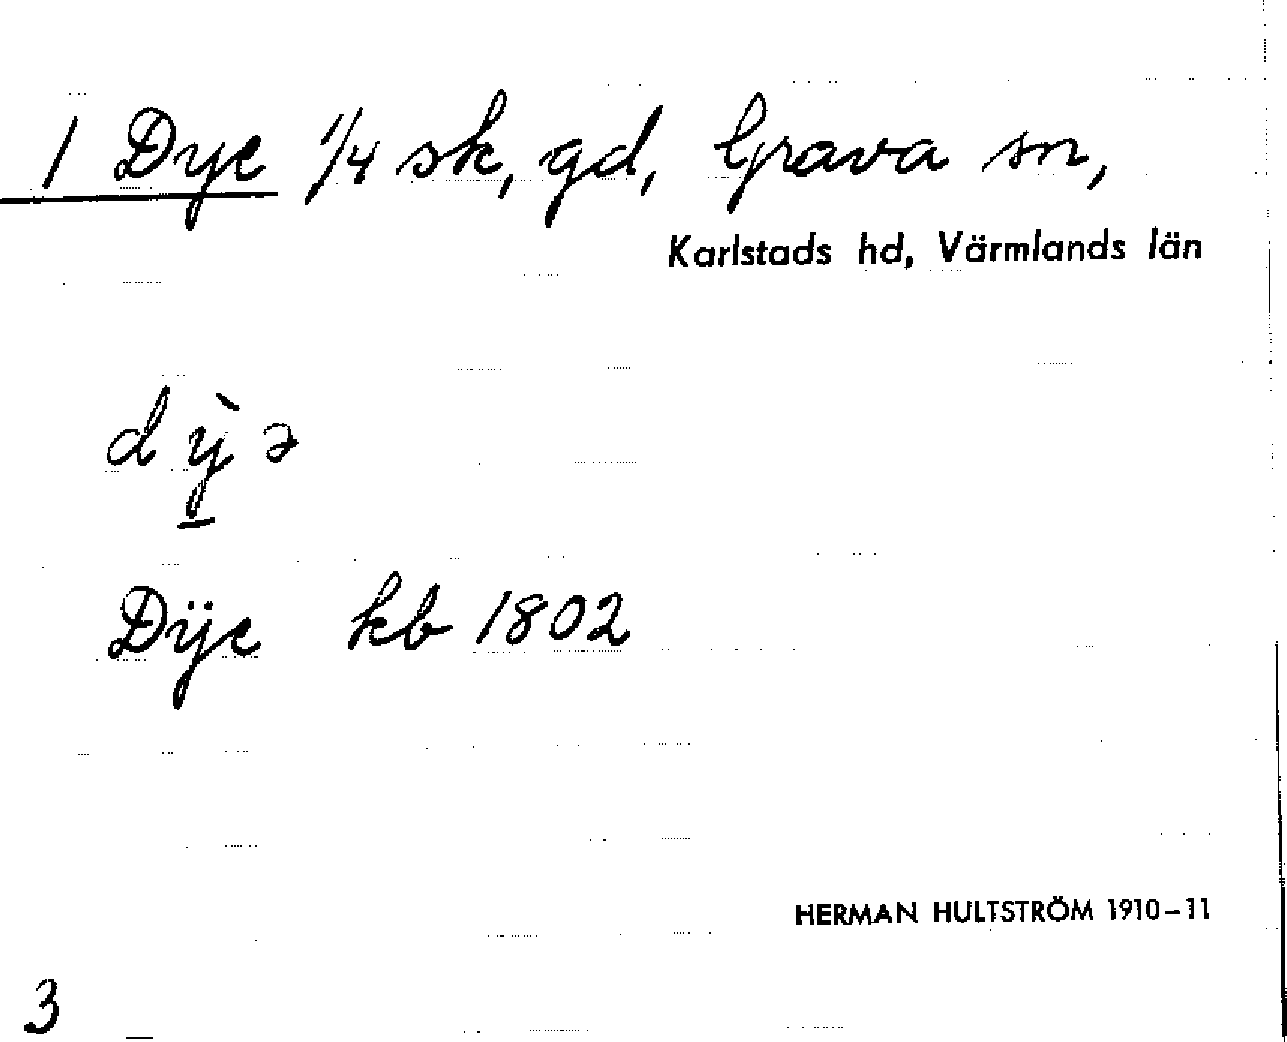 1 Dye 1/4 sk, gd, Grava sn,
Karlstads hd, Värmlands län
dỳ̲ə
Dÿe kb 1802
HERMAN HULTSTRÖM 1910-11
3